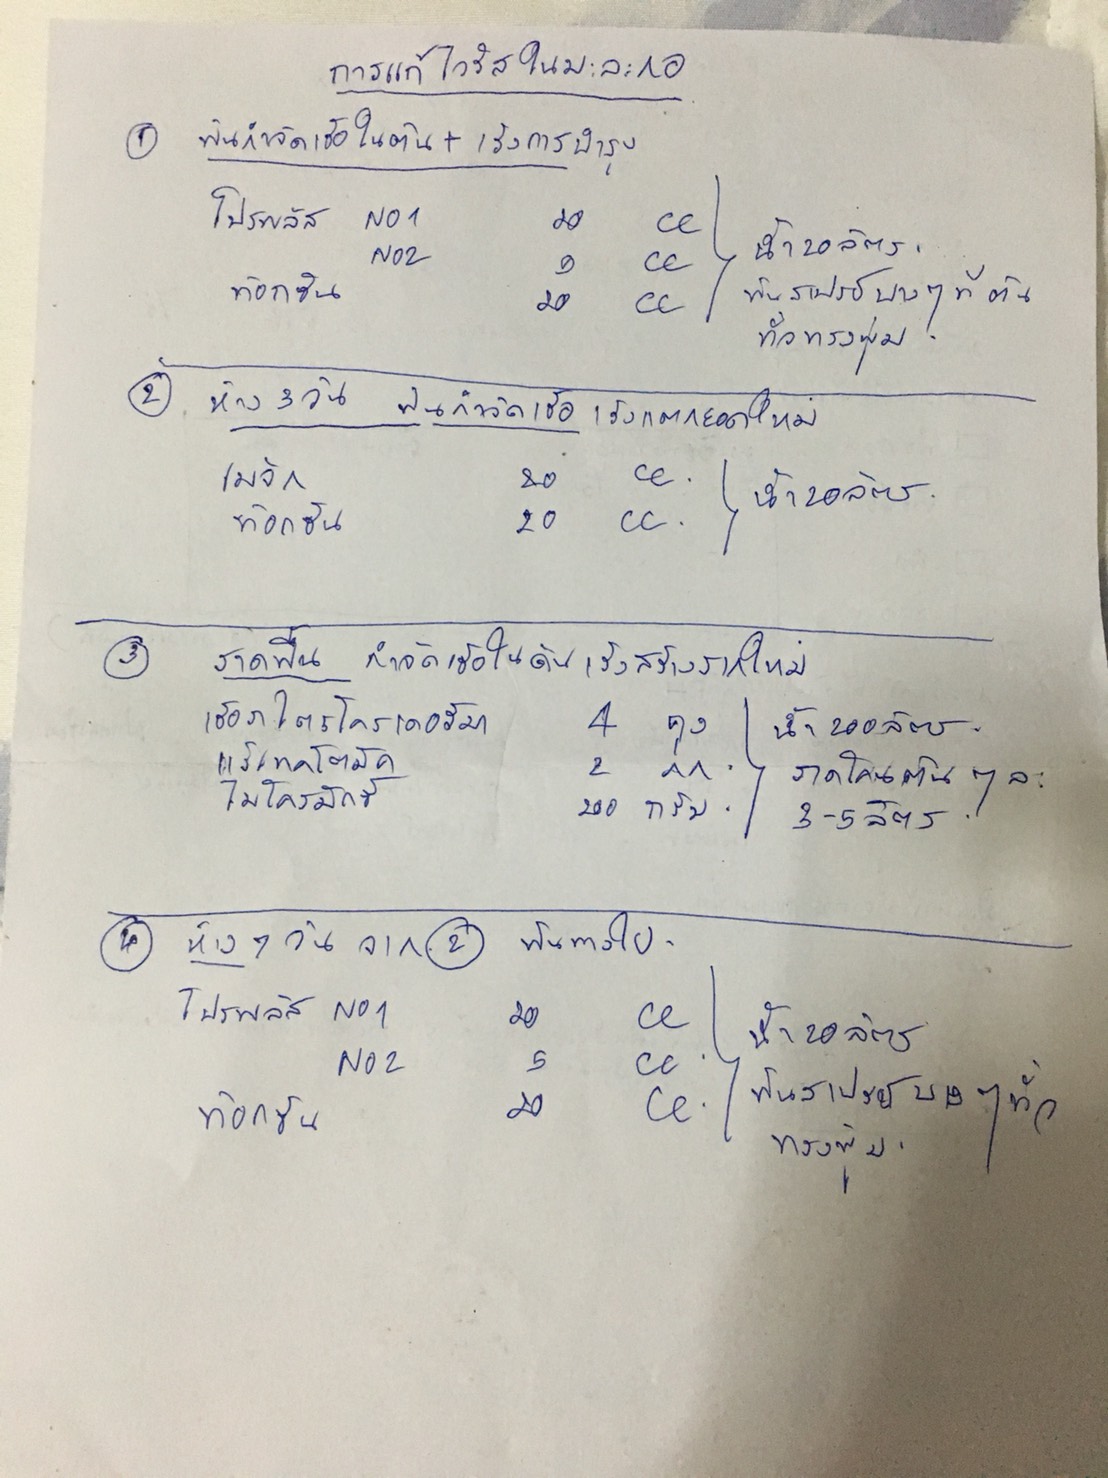 การแก้ไวรัสในมะละกอ
① พ่นกำจัดเชื้อในต้น + เร่งการบำรุง
โปรพลัส NO1 20 CC
NO2 5 CC
ท๊อกซิน 20 CC
น้ำ 20 ลิตร.
พ่นสเปรย์บางๆ ที่ต้น
ทั่วทรงพุ่ม.
② ห่าง 3 วัน พ่นกำจัดเชื้อ เร่งแตกยอดใหม่
เมจิก 20 CC.
ท๊อกซิน 20 CC.
น้ำ 20 ลิตร.
③ ราดพื้น กำจัดเชื้อในดิน เร่งสร้างรากใหม่
เชื้อราไตรโคเดอร์มา 4 ถุง
แร่เทคโตมัค 2 กก.
ไมโครมิกซ์ 200 กรัม.
น้ำ 200 ลิตร.
ราดโคนต้น ๆ ละ
3-5 ลิตร.
④ ห่าง 7 วัน จาก ② พ่นทางใบ.
โปรพลัส NO1 20 CC
NO2 5 CC.
ท๊อกซิน 20 CC.
น้ำ 20 ลิตร
พ่นสเปรย์ บางๆ ทั่ว
ทรงพุ่ม.